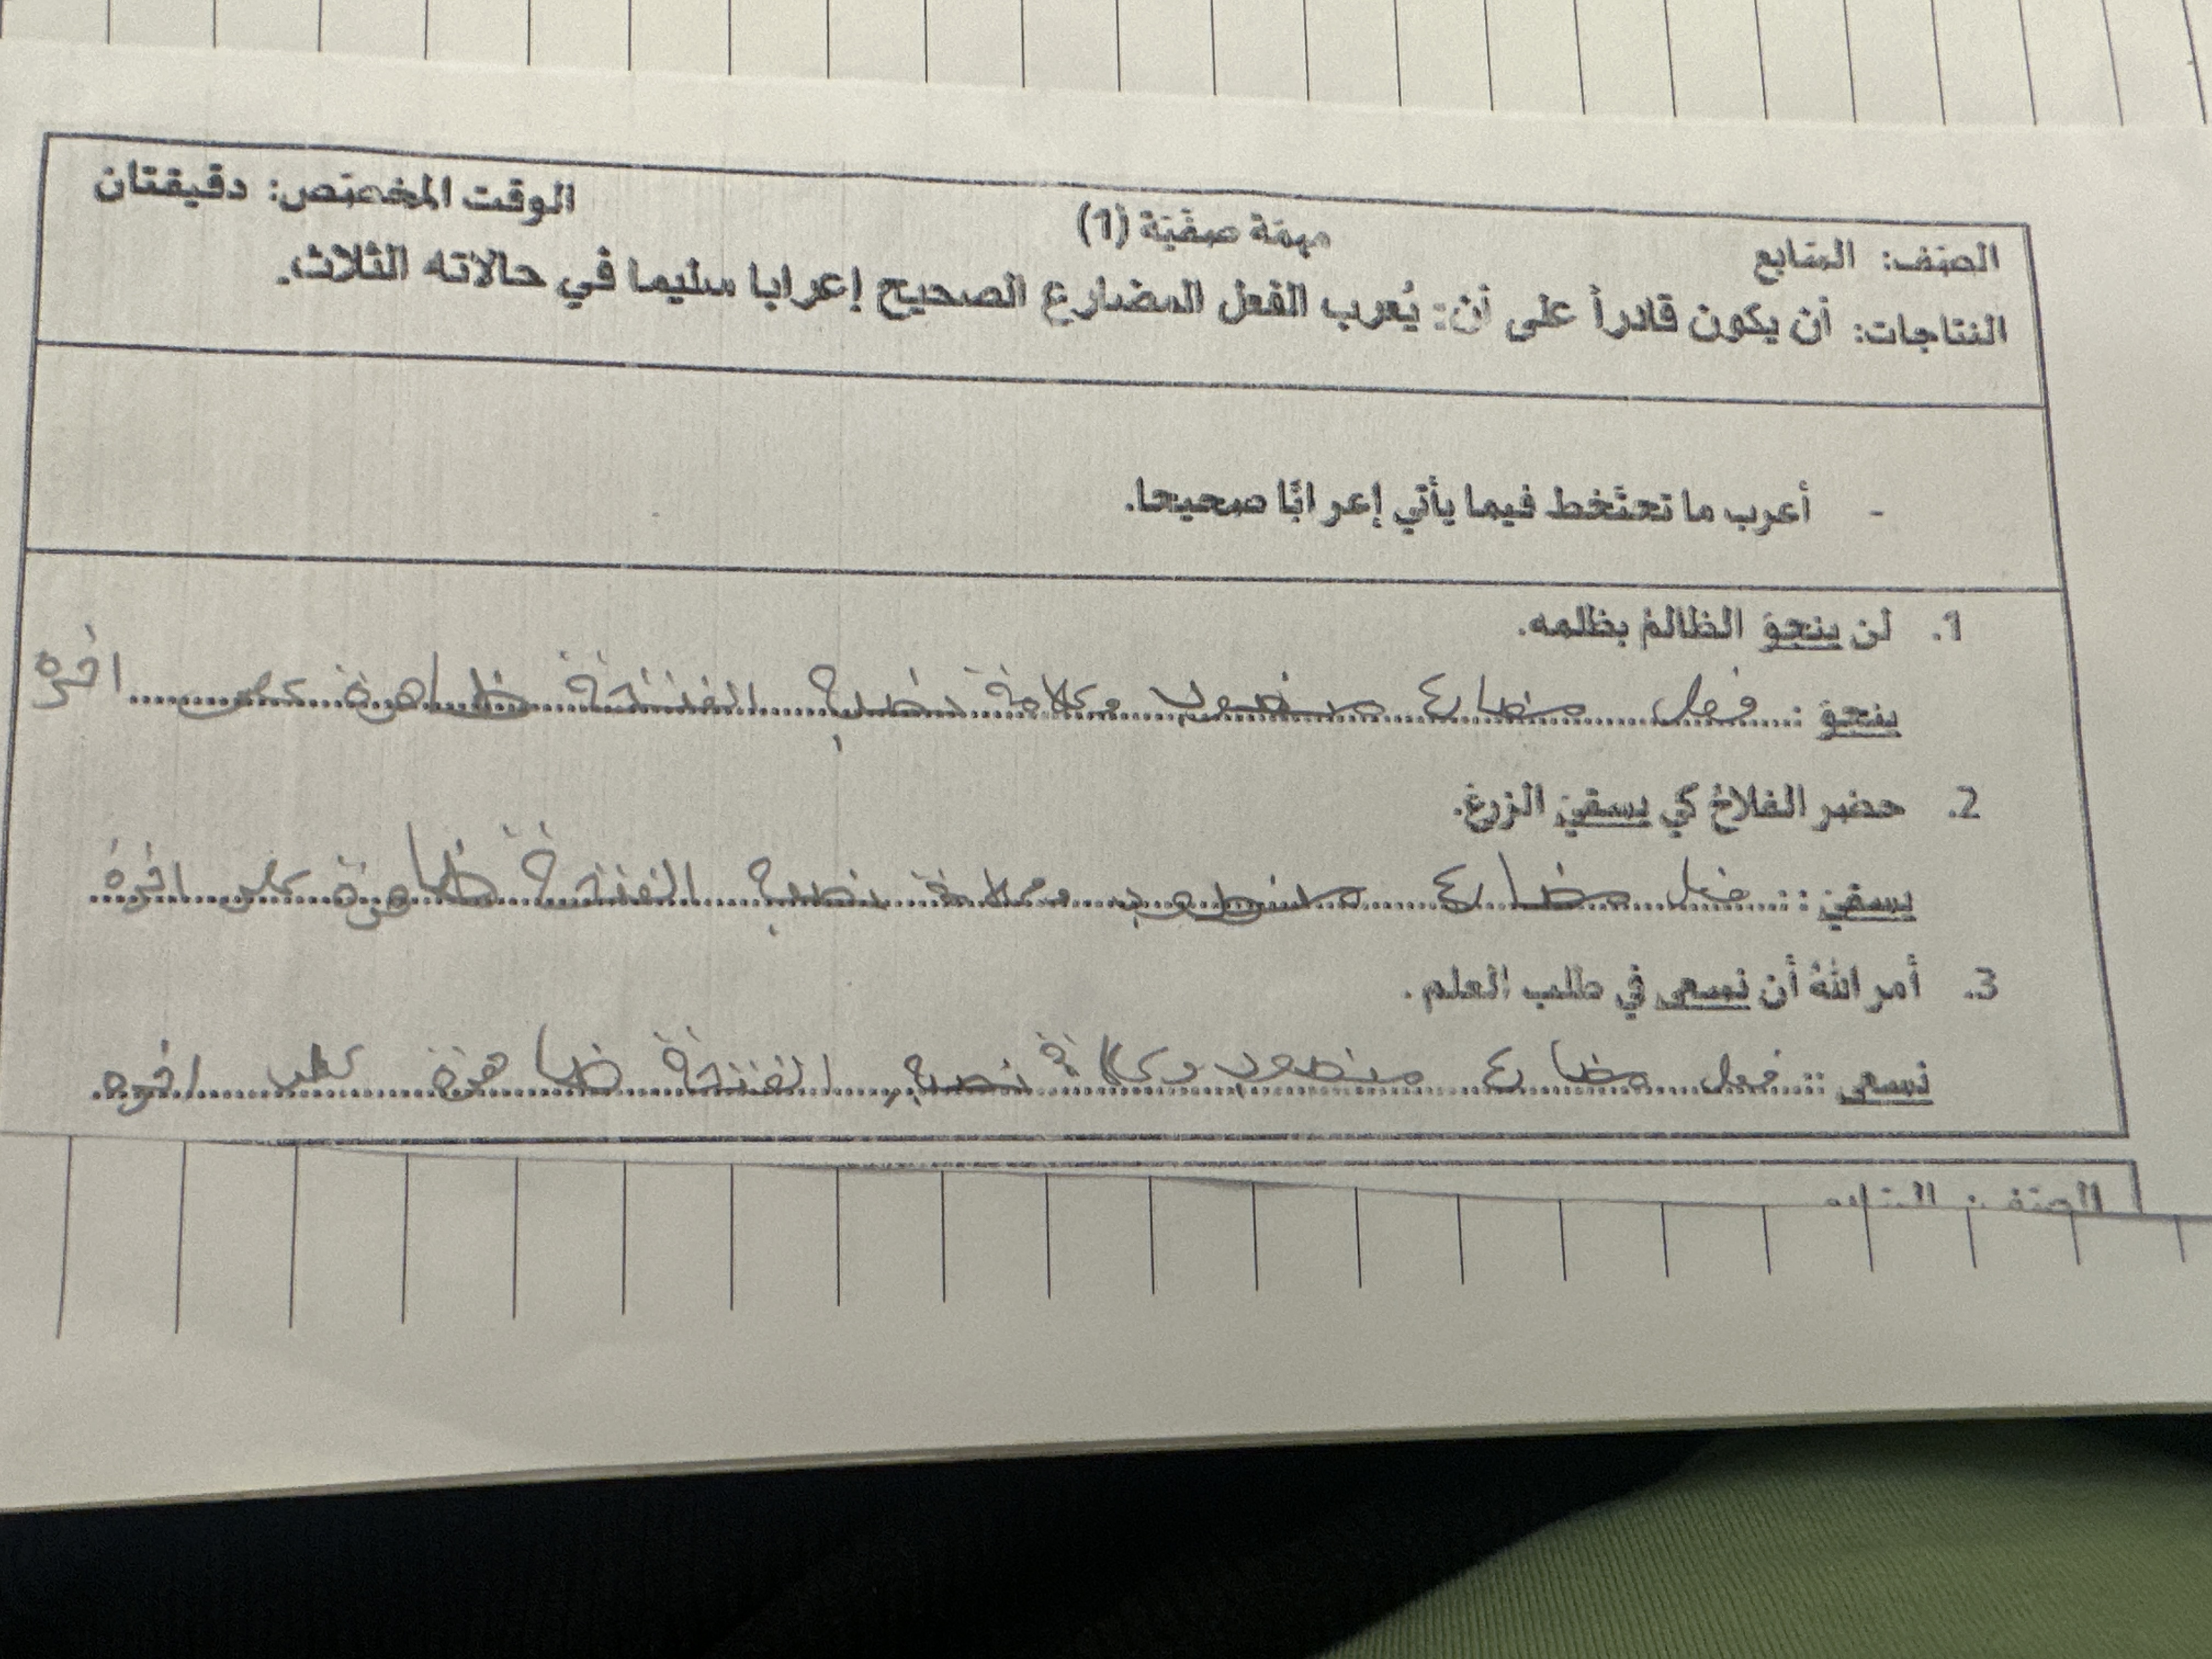 الصف: السابع مهمة صفية (1) الوقت المخصص: دقيقتان
النتاجات: أن يكون قادراً على أن: يُعرب الفعل المضارع الصحيح إعرابا سليما في حالاته الثلاث.
- أعرب ما تحتخط فيما يأتي إعرابًا صحيحا.
1. لن ينجوَ الظالمُ بظلمه.
ينجوَ: فعل مضارع منصوب وعلامة نصب الفتحة ظاهرة على اخره
2. حضر الفلاحُ كي يسقيَ الزرعَ.
يسقيَ: فعل مضارع منصوب وعلامة نصب الفتحة ظاهرة على اخره
3. أمر اللهُ أن نسعى في طلب العلم.
نسعى: فعل مضارع منصوب وعلامة نصب الفتحة ضاهرة على اخره
الصف: السابع